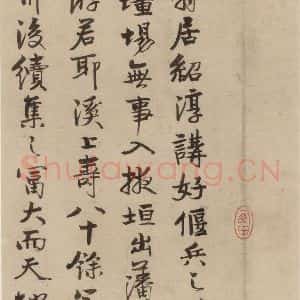 居紹淳講好偃兵之
壇場無事入掖垣出藩
游若耶溪上壽八十餘
後續集之富大而天
Shufawang.CN